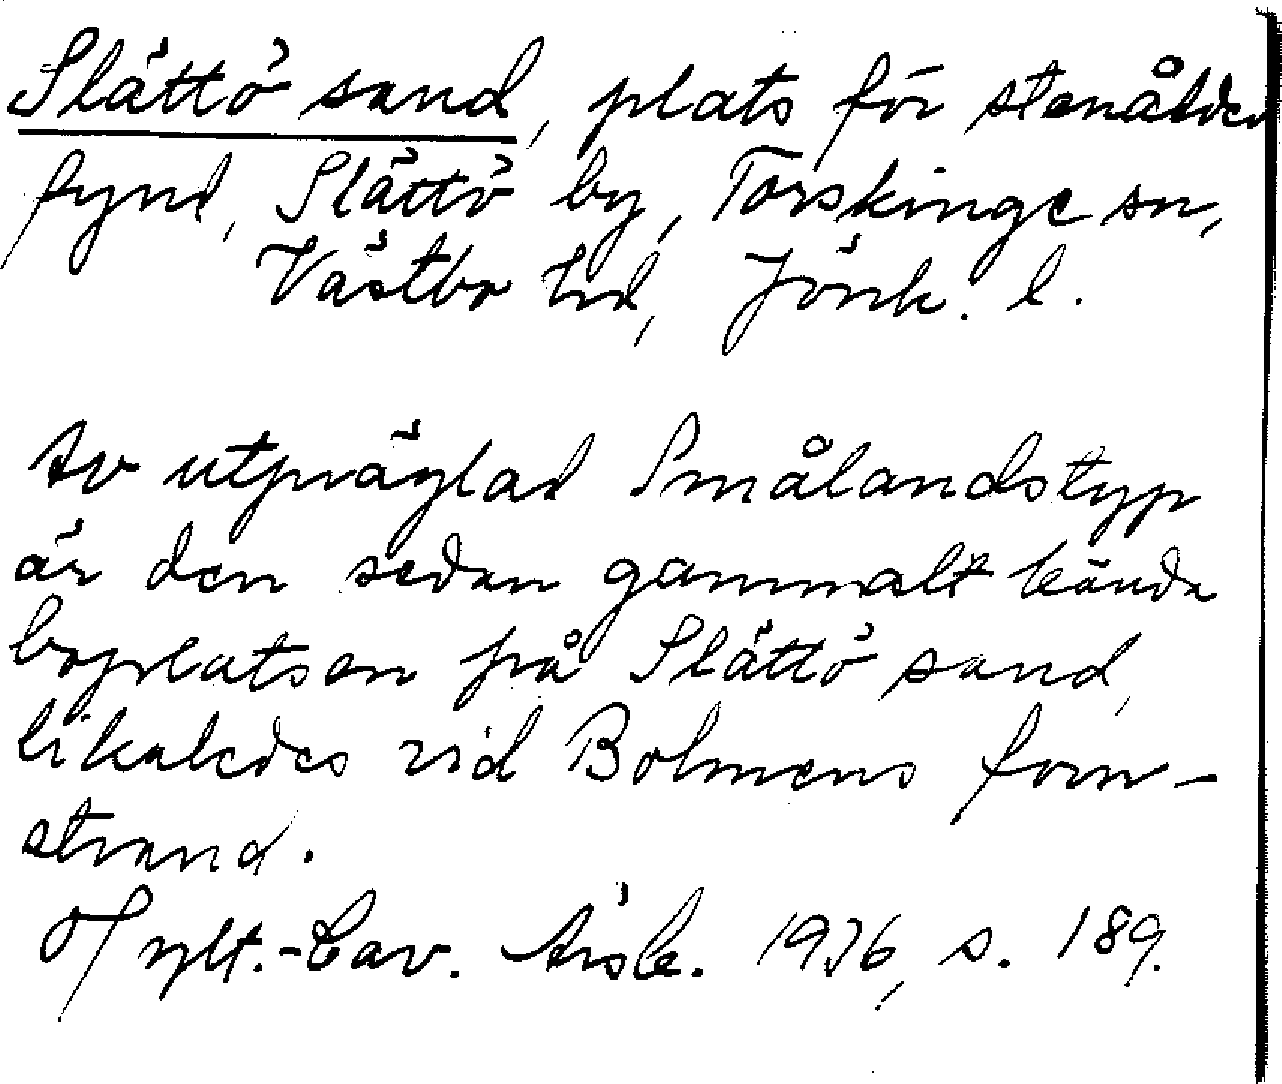 Slättö sand, plats för stenålder
fynd, Slättö by, Torskinge sn,
Västbo hd, Jönk. l.
Av utpräglad Smålandstyp
är den sedan gammalt kända
boplatsen på Slättö sand,
likaledes vid Bolmens forn-
strand.
Hylt.-Cav. Årsb. 1936, s. 189.